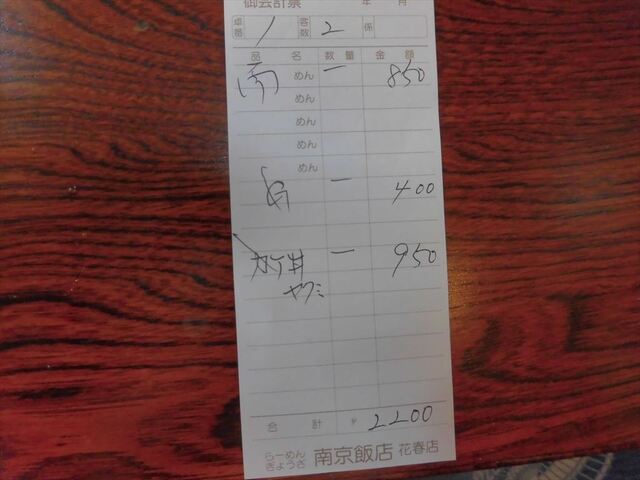 御会計票 年 月
卓番 1 客数 2 係
品 名 数 量 金 額
めん 一 850
めん
めん
めん
めん
一 400
カイ丼 一 950
ヤクミ
合 計 ¥ 2200
らーめん ぎょうざ 南京飯店 花春店